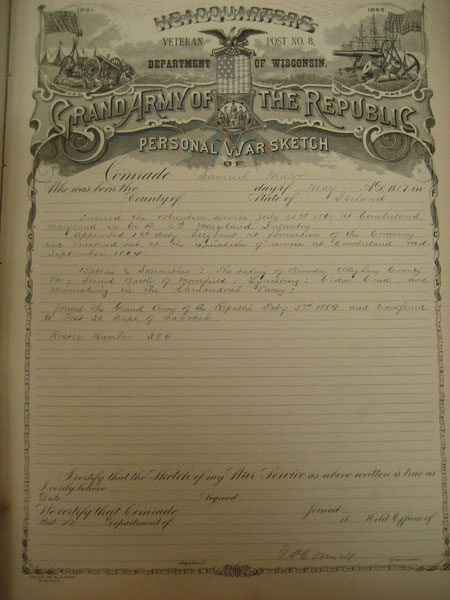 1861. 1865.
HEADQUARTERS
VETERAN POST NO. 8,
DEPARTMENT OF WISCONSIN,
GRAND ARMY OF THE REPUBLIC
PERSONAL WAR SKETCH
OF
Comrade Samuel Major
Who was born the day of May A.D. 1807 in
County of State of Ireland
Entered the volunteer service July 31st 1861 at Cumberland
Maryland in Co. B 2d Maryland Infantry.
Appointed 1st duty Sergeant at formation of the Company
and mustered out at the expiration of service at Cumberland Md.
September 1864.
Battles & Skirmishes: County
Moorefield, Lynchburg, Cedar and
in the Shenandoah Valley:
Joined the Grand Army of the Republic Feby 3rd 1884 and transferred
to Post 30 Dept. of Dakota.
Roster Number 386
I certify that the Sketch of my War Service as above written is true as
I verily believe
Date Signed
We certify that Comrade Joined
Post No. Department of 18 Held Offices of